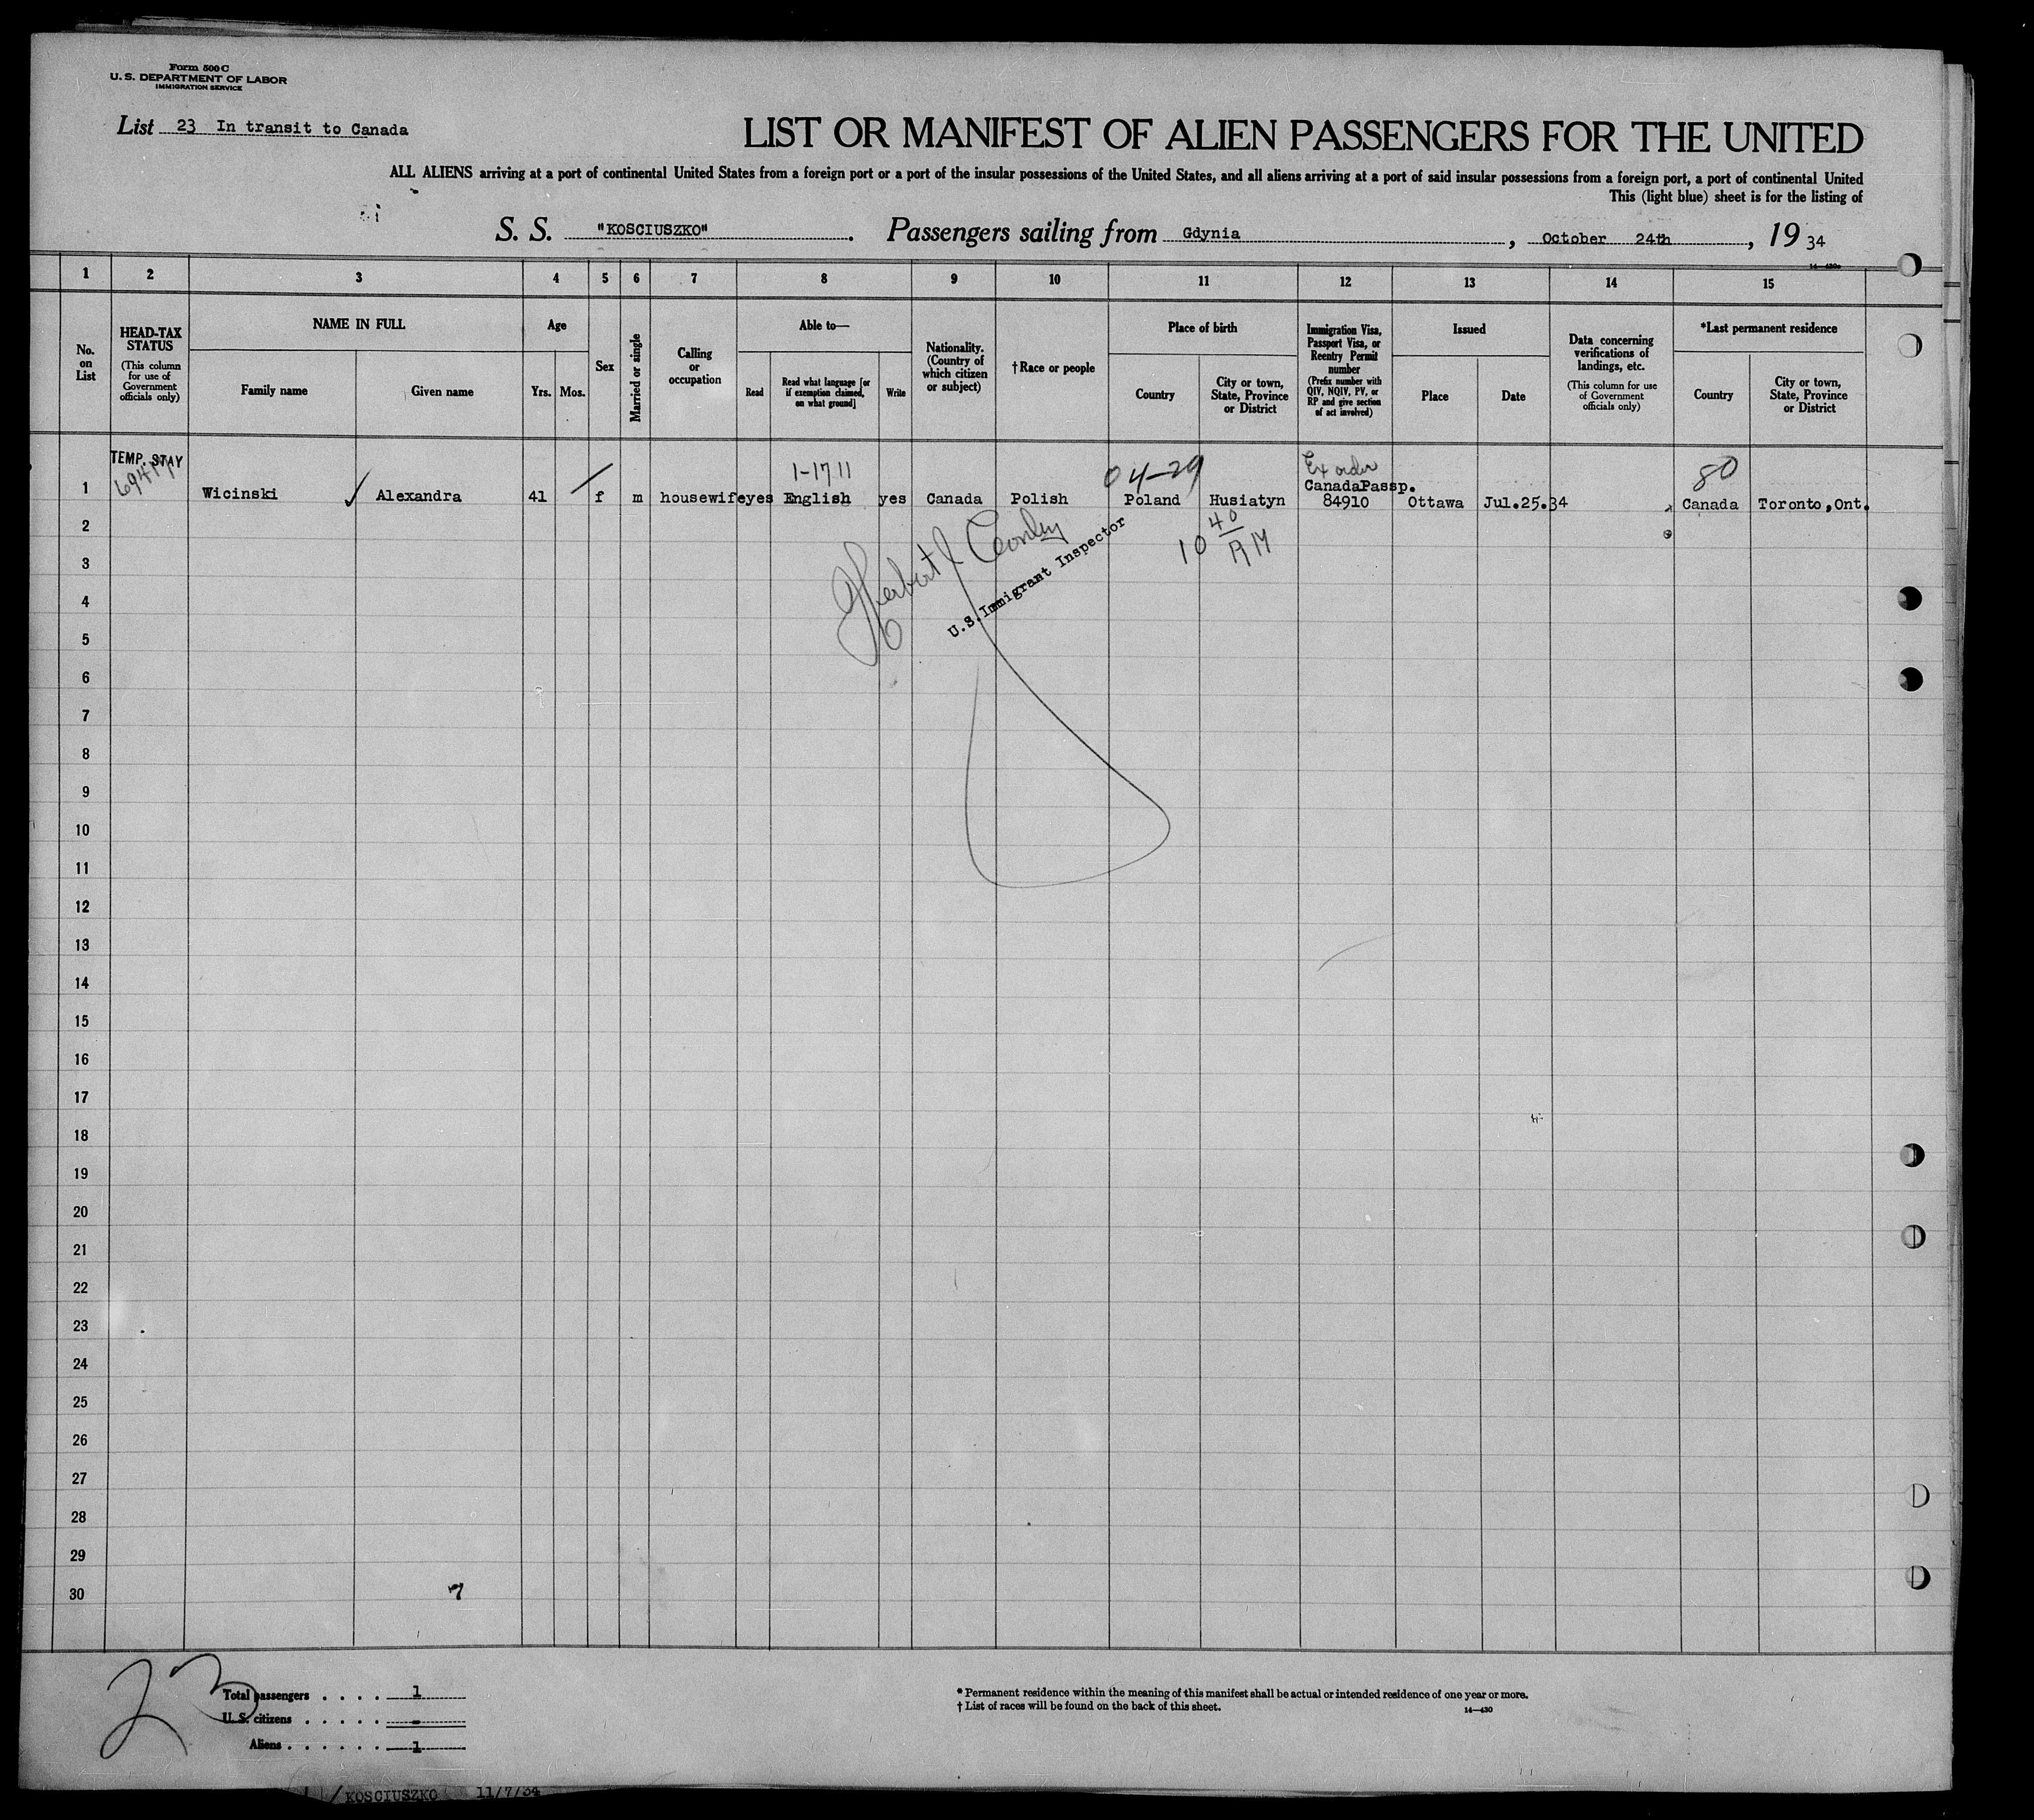 Form 500 C
U. S. DEPARTMENT OF LABOR
IMMIGRATION SERVICE
List 23 In transit to Canada
LIST OR MANIFEST OF ALIEN PASSENGERS FOR THE UNITED
ALL ALIENS arriving at a port of continental United States from a foreign port or a port of the insular possessions of the United States, and all aliens arriving at a port of said insular possessions from a foreign port, a port of continental United
This (light blue) sheet is for the listing of
S. S. "KOSCIUSZKO". Passengers sailing from Gdynia, October 24th, 19 34
1 2 3 4 5 6 7 8 9 10 11 12 13 14 15
No. on List
HEAD-TAX STATUS
(This column for use of Government officials only)
NAME IN FULL
Family name
Given name
Age
Yrs. Mos.
Sex
Married or single
Calling or occupation
Able to—
Read
Read what language [or if exemption claimed, on what ground]
Write
Nationality. (Country of which citizen or subject)
†Race or people
Place of birth
Country
City or town, State, Province or District
Immigration Visa, Passport Visa, or Reentry Permit number
(Prefix number with QIV, NQIV, PV, or RP and give section of act involved)
Issued
Place
Date
Data concerning verifications of landings, etc.
(This column for use of Government officials only)
*Last permanent residence
Country
City or town, State, Province or District
TEMP. STAY
1-17 11
04-29
Ex order
80
CanadaPassp.
1 Wicinski ✓ Alexandra 41 f m housewife yes English yes Canada Polish Poland Husiatyn 84910 Ottawa Jul.25.34 Canada Toronto,Ont.
10 40 AM
U.S. Immigrant Inspector
2
3
4
5
6
7
8
9
10
11
12
13
14
15
16
17
18
19
20
21
22
23
24
25
26
27
28
29
30
7
23
Total passengers . . . . 1
U. S. citizens . . . . . -
Aliens . . . . . . 1
* Permanent residence within the meaning of this manifest shall be actual or intended residence of one year or more.
† List of races will be found on the back of this sheet.
14—430
KOSCIUSZKO 11/7/34